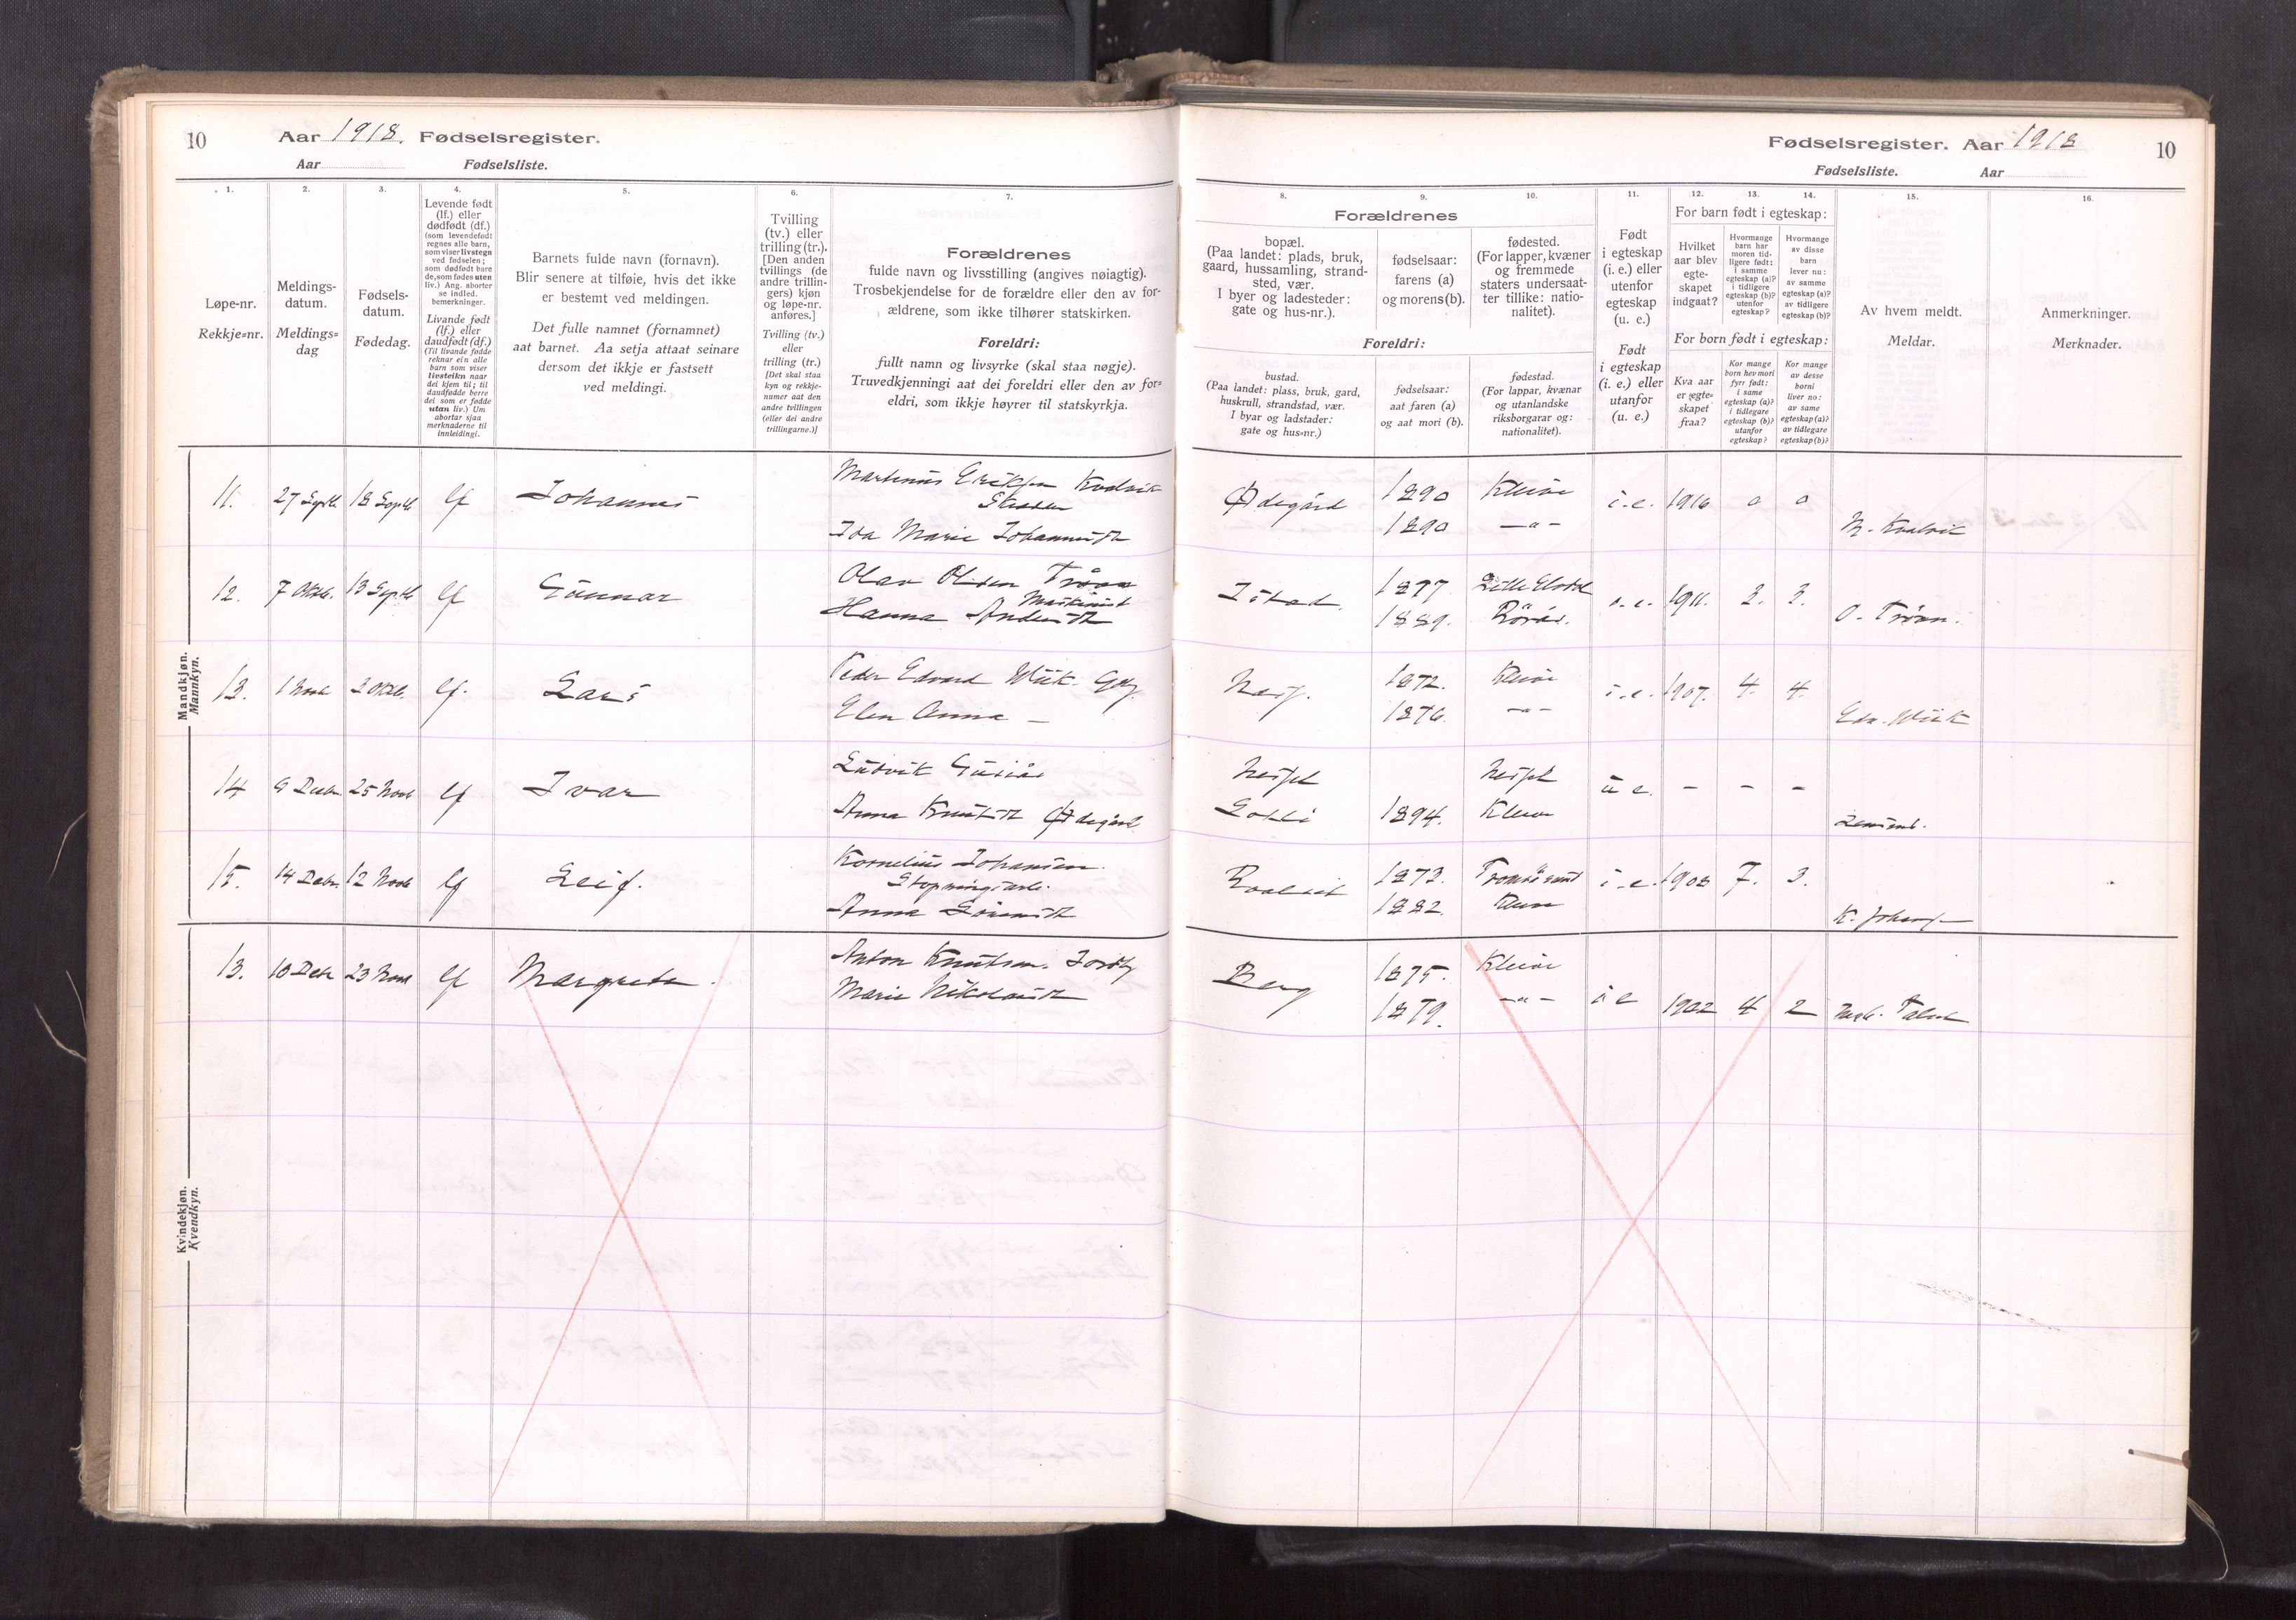 10 Aar 1918. Fødselsregister.
Aar Fødselsliste.
1. 2. 3. 4. 5. 6. 7.
Løpe-nr.
Rekkje=nr.
Meldings-
datum.
Meldings=
dag
Fødsels-
datum.
Fødedag.
Levende født
(lf.) eller
dødfødt (df.)
(som levendefødt
regnes alle barn,
som viser livstegn
ved fødselen;
som dødfødt bare
de, som fødes uten
liv.) Ang. aborter
se indled.
bemerkninger.
Livande født
(lf.) eller
daudfødt (df.)
(Til livande fødde
reknar ein alle
barn som viser
livsteikn naar
dei kjem til; til
daudfødde berre
dei som er fødde
utan liv.) Um
abortar sjaa
merknaderne til
innleidingi.
Barnets fulde navn (fornavn).
Blir senere at tilføie, hvis det ikke
er bestemt ved meldingen.
Det fulle namnet (fornamnet)
aat barnet. Aa setja attaat seinare
dersom det ikkje er fastsett
ved meldingi.
Tvilling
(tv.) eller
trilling (tr.).
[Den anden
tvillings (de
andre trillin-
gers) kjøn
og løpe-nr.
anføres.]
Tvilling (tv.)
eller
trilling (tr.)
[Det skal staa
kyn og rekkje-
numer aat den
andre tvillingen
(eller dei andre
trillingarne.)]
Forældrenes
fulde navn og livsstilling (angives nøiagtig).
Trosbekjendelse for de forældre eller den av for-
ældrene, som ikke tilhører statskirken.
Foreldri:
fullt namn og livsyrke (skal staa nøgje).
Truvedkjenningi aat dei foreldri eller den av for=
eldri, som ikkje høyrer til statskyrkja.
Mandkjøn.
Mannkyn.
11. 27 Septb. 18 Septb lf Johannes
Martinus Eriksen Kvalvik
Ida Marie Johannesdt
12. 7 Oktb. 13 Septb lf Gunnar
Olav Olsen Trøan
Maskinist
Hanna Andersdt
13. 1 Novb 2 Oktb. lf. Lars
Peder Edvard Wiik. Gbr.
Elen Anna —
14 9 Decbr. 25 Novb lf Ivar
Ludvik
Anna Knutsdt Ødegård
15. 14 Decbr. 12 Novb lf Leif.
Kornelius Johansen.
Anna
Kvindekjøn.
Kvendkyn.
13. 10 Decbr 23 Novb lf Margrete.
Anton Knutsen. Jordbr
Marie Nikolaisdt
Fødselsregister. Aar 1918 10
Fødselsliste. Aar
8. 9. 10. 11. 12. 13. 14. 15. 16.
Forældrenes
bopæl.
(Paa landet: plads, bruk,
gaard, hussamling, strand-
sted, vær.
I byer og ladesteder:
gate og hus-nr.).
fødselsaar:
farens (a)
og morens (b).
fødested.
(For lapper, kvæner
og fremmede
staters undersaat-
ter tillike: natio-
nalitet).
Foreldri:
bustad.
(Paa landet: plass, bruk, gard,
huskrull, strandstad, vær.
I byar og ladstader:
gate og hus=nr.)
fødselsaar:
aat faren (a)
og aat mori (b).
fødestad.
(For lappar, kvænar
og utanlandske
riksborgarar og:
nationalitet).
Født
i egteskap
(i. e.) eller
utenfor
egteskap
(u. e.)
Født
i egteskap
(i. e.) eller
utanfor
(u. e.)
For barn født i egteskap:
Hvilket
aar blev
egte-
skapet
indgaat?
Hvormange
barn har
moren tid-
ligere født:
i samme
egteskap (a)?
i tidligere
egteskap (b)?
utenfor
egteskap?
Hvormange
av disse
barn
lever nu:
av samme
egteskap (a)?
av tidligere
egteskap (b)?
For born født i egteskap:
Kva aar
er egte=
skapet
fraa?
Kor mange
born hev mori
fyrr født:
i same
egteskap (a)?
i tidlegare
egteskap (b)?
utanfor
egteskap?
Kor mange
av desse
borni
liver no:
av same
egteskap (a)?
av tidlegare
egteskap (b)?
Av hvem meldt.
Meldar.
Anmerkninger.
Merknader.
Ødegård 1890 Kleiva i.e. 1916 0 0 M. Kvalvik
1890 — " —
1877 i.e. 1911. 3. 3. O. Trøan.
1889. Røros.
1872. Kleiva i.e. 1907. 4. 4. Edv. Wiik
1876. — " —
u e. – – –
1894. Kleiva
1873. i.e. 1908 7. 3. K. Johans—
1882. Kleiva
Berg 1875. Kleiva i e 1902 4 2
1879. — " —